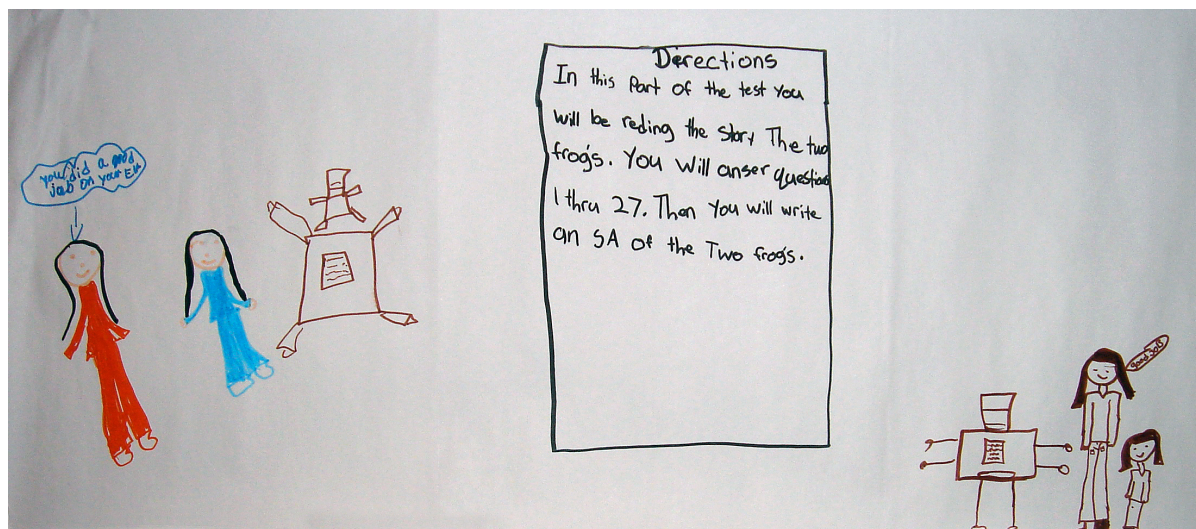 you did a good
job on your ELA
Directions
In this Part of the test you
will be reding the story The two
frog's. You Will anser question
1 thru 27. Then You will write
an SA of the Two frog's.
good Job